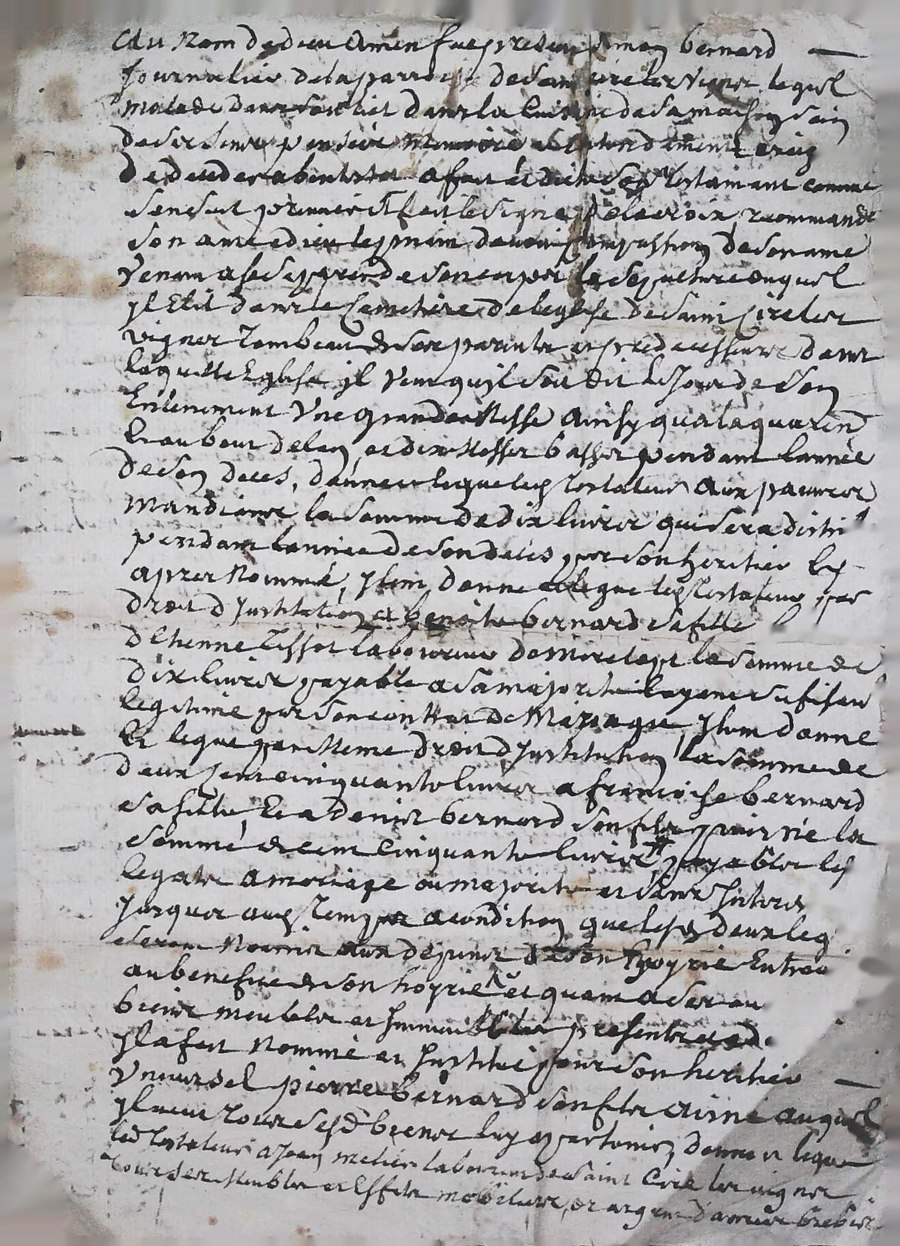 Au Nom de dieu Amen fut present Simon bernard
Journalier de la parroisse de saint cire les vignes lequel
malade dans son lict dans la cuisine de sa maison sain
de ses sens pensée memoire et entendement
de deceder abintestat a fait et dicté son testament comme
sensuit premier Il fait le signe de la croix recommande
son ame a dieu le priant davoir compassion de son ame
venant a se separer de son corps la sepulture duquel
Il Elit dans le Cemetière de leglise de Saint Cire les
vignes tombeau de ses parents et predecesseurs dans
laquelle Eglise il veut quil soit dit le Jour de son
Enterrement Une grande Messe Ainsy qua la quaren
Et au bout de lan et dix Messes basses pendant lannée
de son deces, donne et legue ledit testateur aux pauvres
mandiants la somme de dix livres qui sera distri
pendant lannée de son deces par son heritier Cy
apres Nommé, Item donne et legue ledit testateur par
droit d'Institution a benoite bernard sa fille
d'Etienne Tissot laboureur la somme de
dix livres payable a sa majorité layant sufisam
legitimé par son contrat de Mariage, Item donne
Et legue par meme droit dInstitution la somme de
deux Cent cinquante livres a francoise bernard
sa fille, Et a denis bernard son fils puisné la
somme de cent cinquante livres payables les
legats a mariage ou majorité et sans Interes
Jusques au dit temps a condition que lesd deux leg
seront Nourris aux depens de son hoyrie Entrav
au benefice de son hoyrie et quant a ses au
biens meubles et Immeubles presents et ad
Il a fait Nommé et Institué pour son heritier
Universel pierre bernard son fils aisné auquel
Il veut tous sesd biens luy apartenir, donne et legue
led testateur a Jean metier laboureur de Saint Cire les vignes
tous ses Meubles et Effets mobiliers, or argent brebis